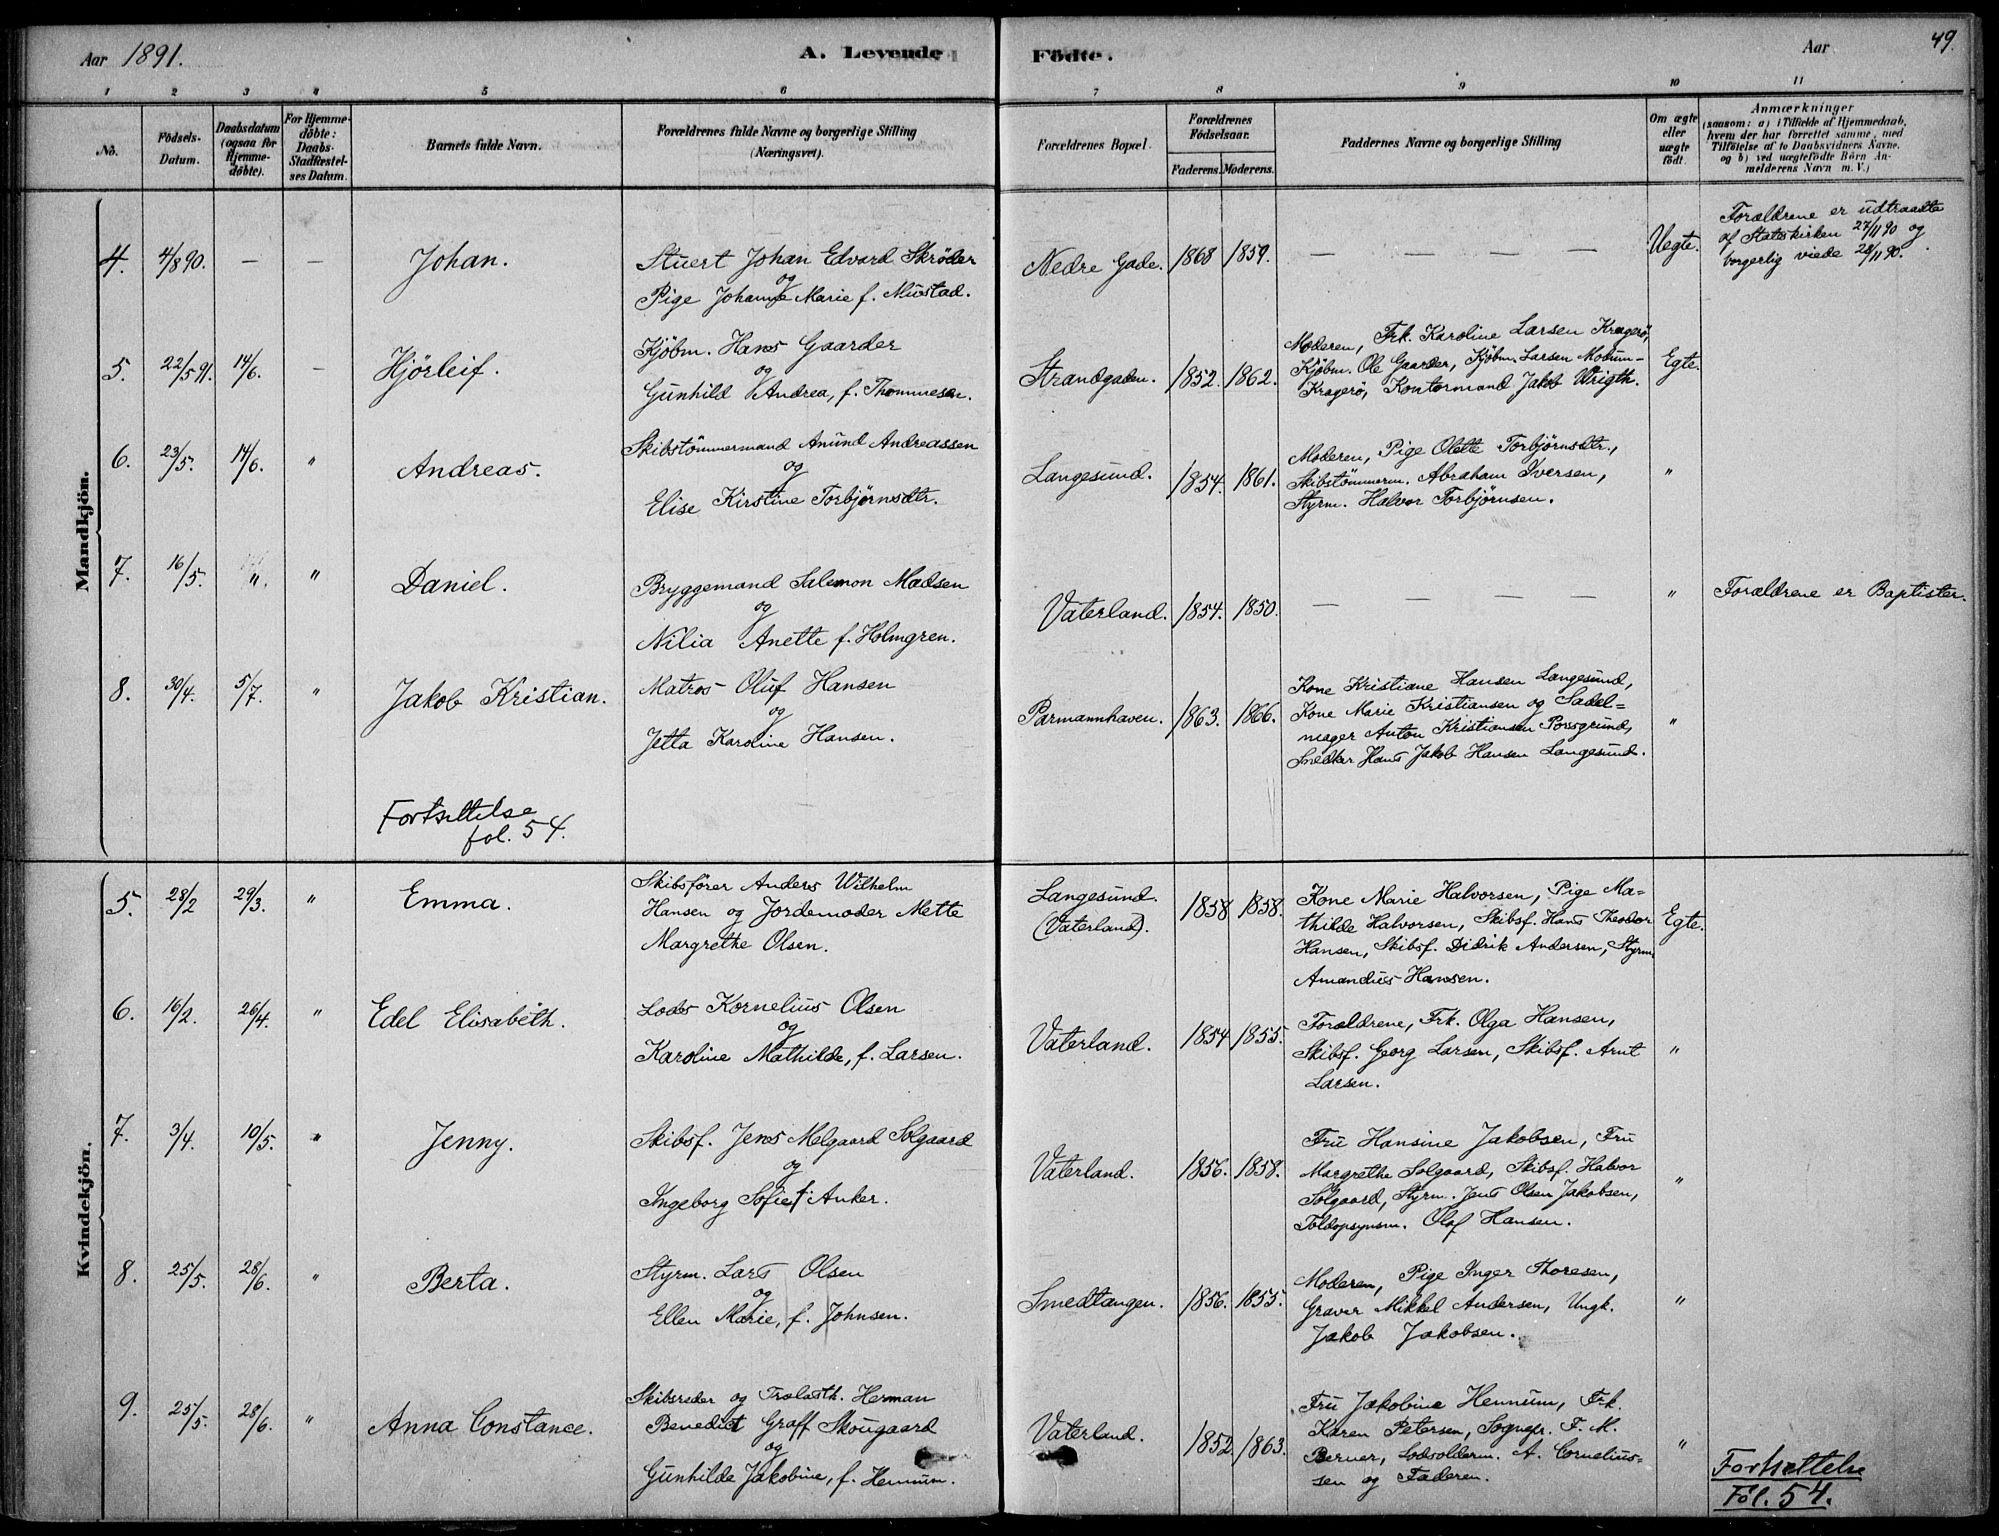 Aar 1891.
A. Levende
Födte.
Aar
49.
1 2 3 4 5 6 7 8 9 10 11
No.
Födsels-
Datum.
Daabsdatum
(ogsaa for
Hjemme-
döbte).
For Hjemme-
döbte:
Daabs-
Stadfæstel-
ses Datum.
Barnets fulde Navn.
Forældrenes fulde Navne og borgerlige Stilling
(Næringsvei).
Forældrenes Bopæl.
Forældrenes
Födselsaar.
Faderens. Moderens.
Faddernes Navne og borgerlige Stilling
Om ægte
eller
uægte
födt.
Anmærkninger
(saasom: a) i Tilfælde af Hjemmedaab,
hvem der har forrettet samme, med
Tilföielse af to Daabsvidners Navne.
og b) ved uægtefödte Börn An-
melderens Navn m. V.)
Mandkjön.
4. 4/8 90. — — Johan.
Stuert Johan Edvard Skrøder
og
Pige Johanne Marie f. Mustad.
Nedre Gade. 1868 1859. — — — — Uegte.
Forældrene er udtraadte
af Statskirken 27/11 90 og
borgerlig viede 28/11 90.
5. 22/5 91. 14/6. — Hjörleif.
Kjøbm. Hans Gaarder
og
Gunhild Andrea, f. Thommesen.
Strandgaden. 1852. 1862.
Moderen, Frk. Karoline Larsen Kragerö,
Kjøbm. Ole Gaarder, Kjøbm. Larsen Modum-
Kragerö, Kontormand Jakob Wrigth.
Egte.
6. 23/5. 14/6. " Andreas.
Skibstömmermand Anund Andreassen
og
Elise Kirstine Torbjørnsdtr.
Langesund. 1854. 1861.
Moderen, Pige Olette Torbjørnsdtr.,
Skibstömmerm. Abraham Iversen,
Styrm. Halvor Torbjørnsen.
"
7. 16/5. ". " Daniel.
Bryggemand Salemon Madsen
og
Nilia Anette f. Holmgren.
Vaterland. 1854. 1850. — — — — "
Forældrene er Baptister.
8. 30/4. 5/7. " Jakob Kristian.
Matros Oluf Hansen
og
Jetta Karoline Hansen.
Parmannhaven. 1863. 1866.
Kone Kristiane Hansen Langesund,
Kone Marie Kristiansen og Sadel=
mager Anton Kristiansen Porsgrund,
Snedker Hans Jakob Hansen Langesund.
"
Fortsettelse
fol. 54.
Kvindekjön.
5. 28/2 29/3. " Emma.
Skibsfører Anders Wilhelm
Hansen og Jordemoder Mette
Margrethe Olsen.
Langesund.
(Vaterland).
1858 1858.
Kone Marie Halvorsen, Pige Ma=
thilde Halvorsen, Skibsf. Hans Theodor
Hansen, Skibsf. Didrik Andersen, Styrm.
Amandus Hansen.
Egte.
6. 16/2. 26/4. " Edel Elisabeth.
Lods Kornelius Olsen
og
Karoline Mathilde, f. Larsen.
Vaterland. 1854 1855.
Forældrene, Frk. Olga Hansen,
Skibsf. Georg Larsen, Skibsf. Arnt
Larsen.
"
7. 3/4. 10/5. " Jenny.
Skibsf. Jens Melgaard Solgaard
og
Ingeborg Sofie f. Anker.
Vaterland. 1856. 1858.
Fru Hansine Jakobsen, Fru
Margrethe Solgaard, Skibsf. Halvor
Solgaard, Styrm. Jens Olsen Jakobsen,
Toldopsynsm. Olaf Hansen.
"
8. 25/5. 28/6. " Berta.
Styrm. Lars Olsen
og
Ellen Marie, f. Johnsen.
Smedtangen. 1856. 1855.
Moderen, Pige Inger Thoresen,
Graver Mikkel Andersen, Ungk.
Jakob Jakobsen.
"
9. 25/5. 28/6. " Anna Constance.
Skibsreder og Trælasth. Herman
Benedict Graff Skougaard
og
Gunhilde Jakobine, f. Hennum.
Vaterland. 1852 1863.
Fru Jakobine Hennum, Frk.
Karen Petersen, Sognepr. F. M.
Berner, Lodsolderm. A. Cornelius-
sen og Faderen.
"
Fortsettelse
Fol. 54.